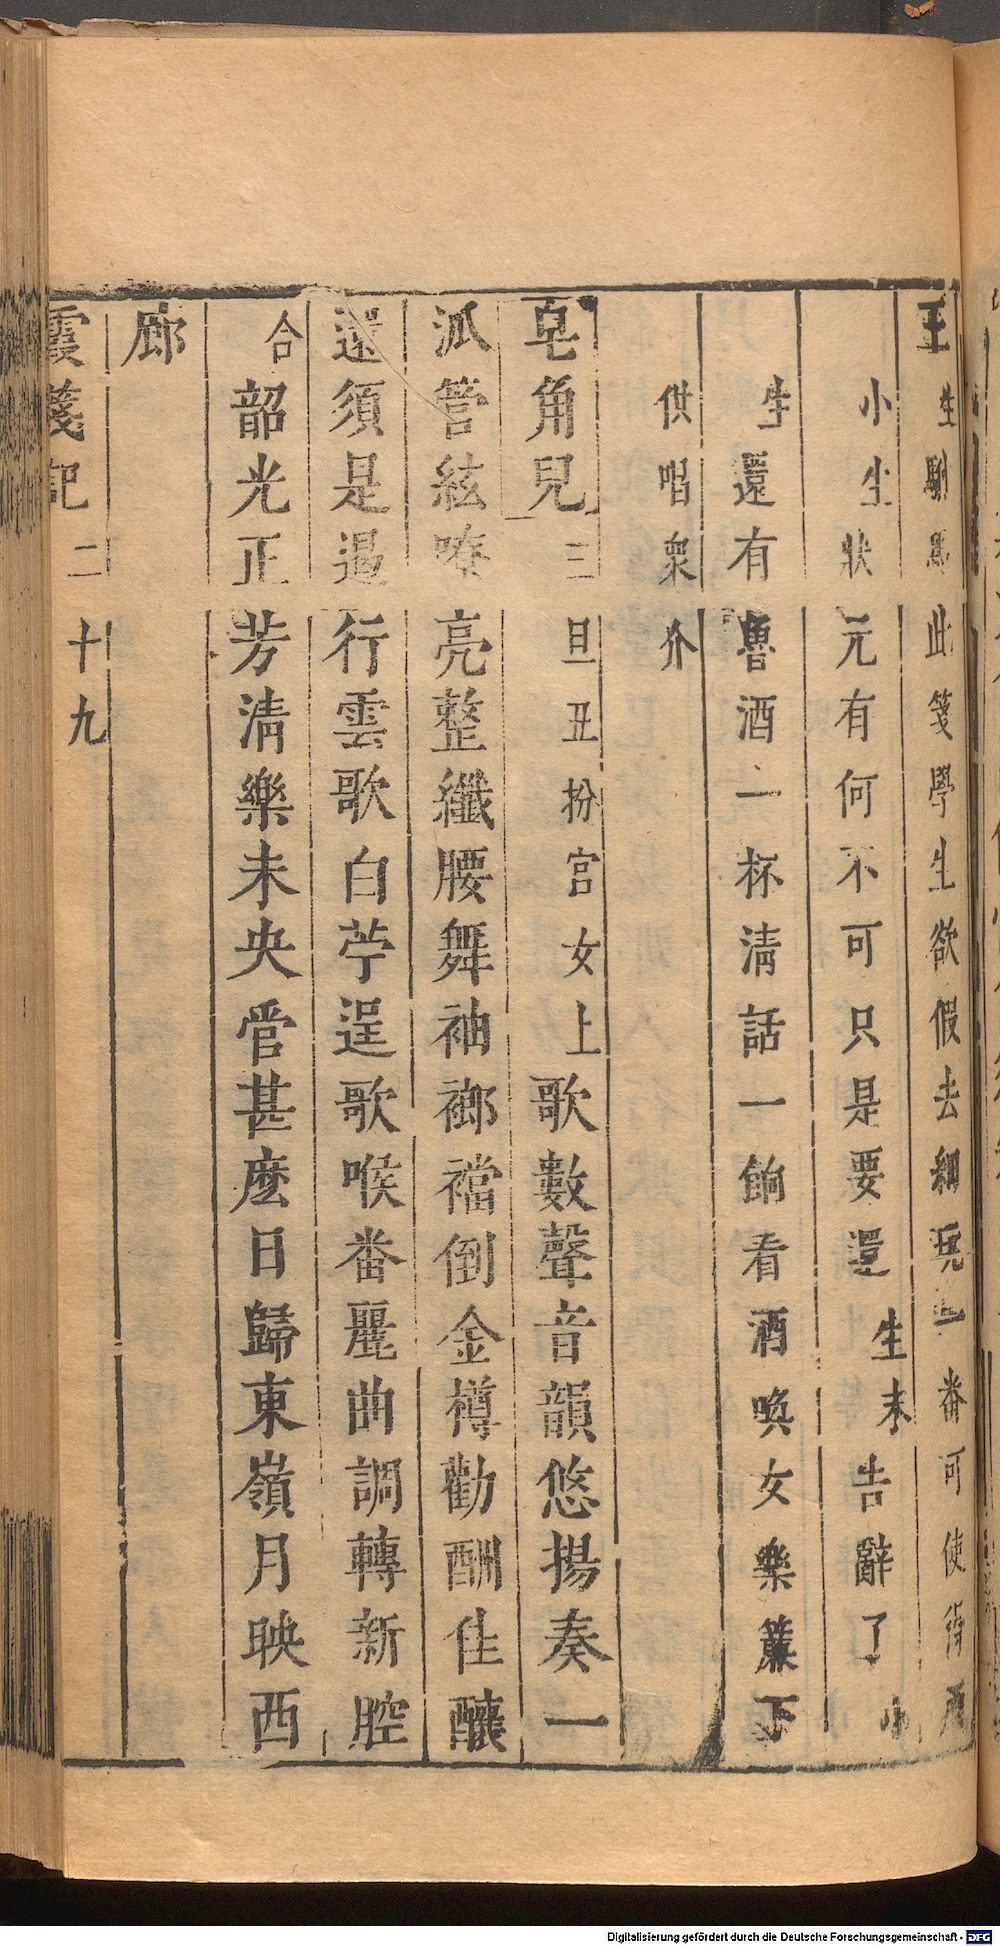 王生駙馬此箋學生欲假去細玩一番可使得
小生狀元有何不可只是要還生末告辭了小
生還有魯酒一杯清話一餉看酒喚女樂簾下
供唱衆介
皂角兒三旦丑扮宮女上歌數聲音韻悠揚奏一
派管絃嘹亮整纖腰舞袖襠倒金樽勸酬佳釀
還須是遏行雲歌白苧逞歌喉番麗曲調轉新腔
合韶光正芳清樂未央管甚麽日歸東嶺月映西
廊
霞箋記 二十九
Digitalisierung gefördert durch die Deutsche Forschungsgemeinschaft - DFG